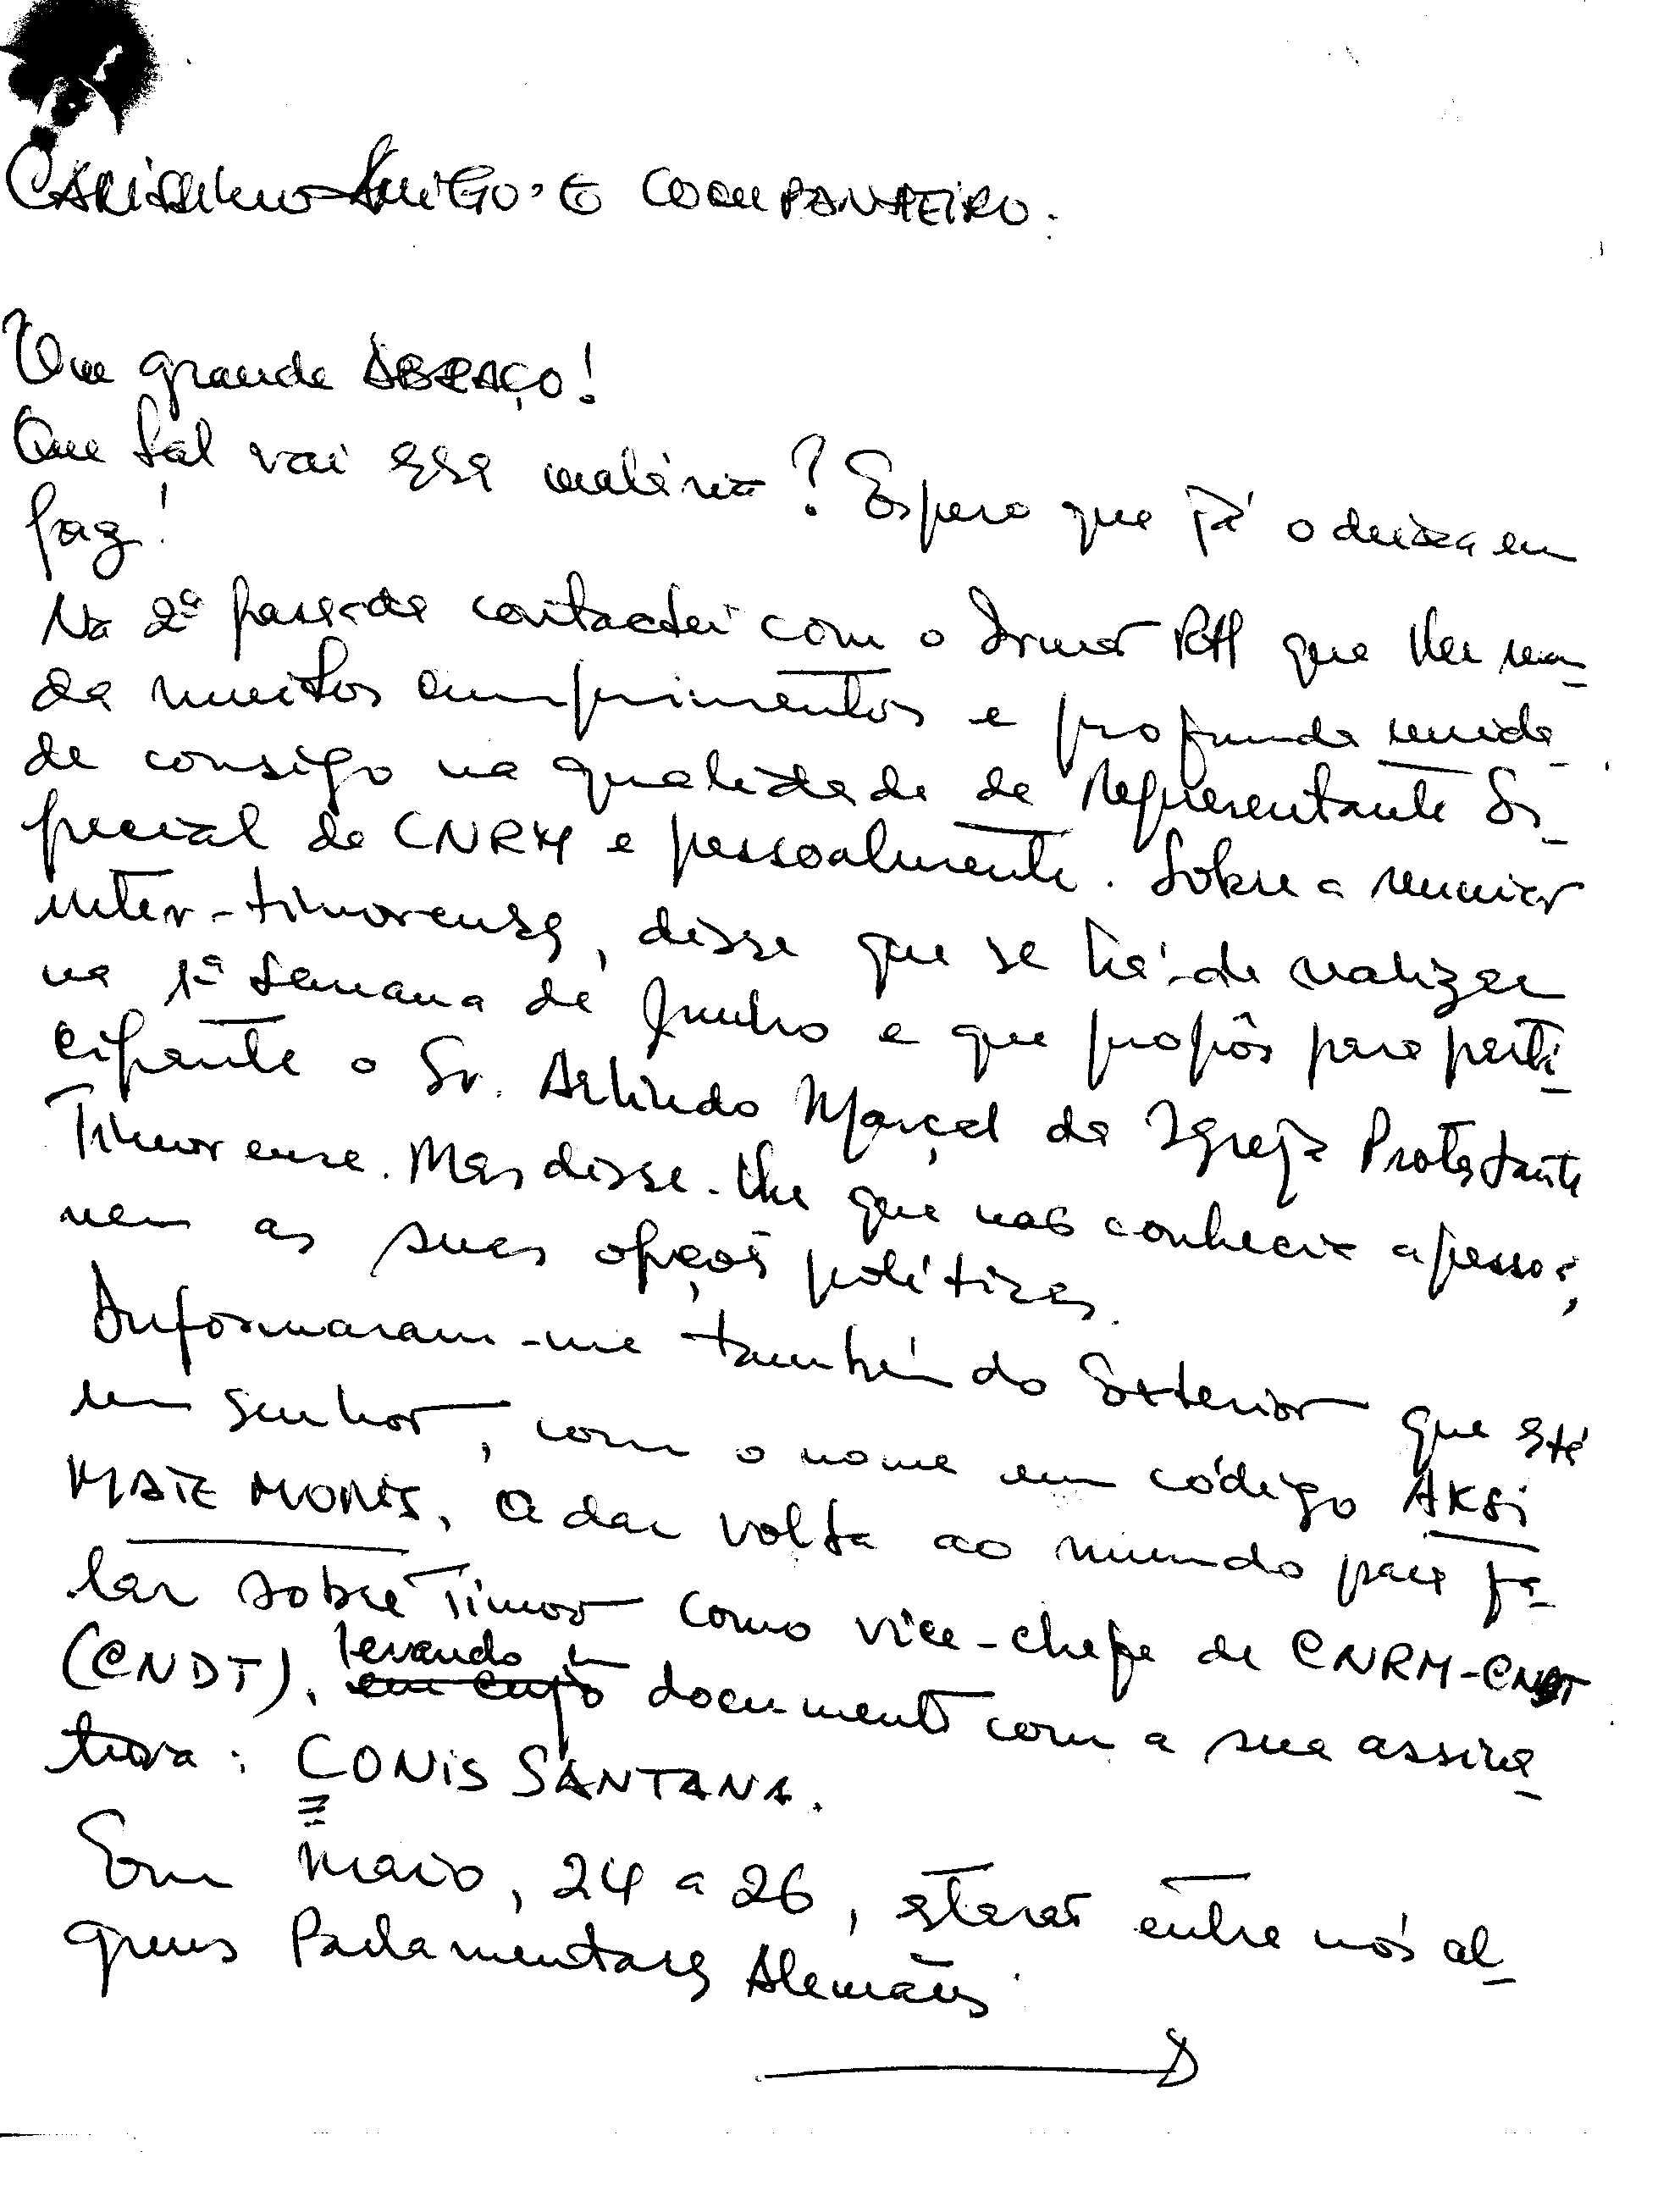 CARISSIMO AMIGO E COMPANHEIRO:
Um grande ABRAÇO!
Que tal vai essa malária? Espero que já o deixa em
paz!
Na 2ª passada contactei com o Irmão RH que lhe man-
da muitos cumprimentos e profunda unida-
de consigo na qualidade de Representante Es-
pecial do CNRM e pessoalmente. Sobre a reunião
inter-timorense, disse que se há-de realizar
na 1ª semana de Junho e que propôs para parti-
cipante o Sr. Arlindo Marçal da Igreja Protestante
Timorense. Mas disse-lhe que não conhecia a pessoa,
nem as suas opções políticas.
Informaram-me também do Exterior que está
um senhor, com o nome em código AKSI
MATE MORIS, a dar volta ao mundo para fa-
lar sobre Timor como vice-chefe do CNRM-CNDT
(CNDT), levando um em cujo documento com a sua assina-
tura: CONIS SANTANA.
Em Maio, 24 a 26, estarão entre nós al-
guns Parlamentares Alemães.